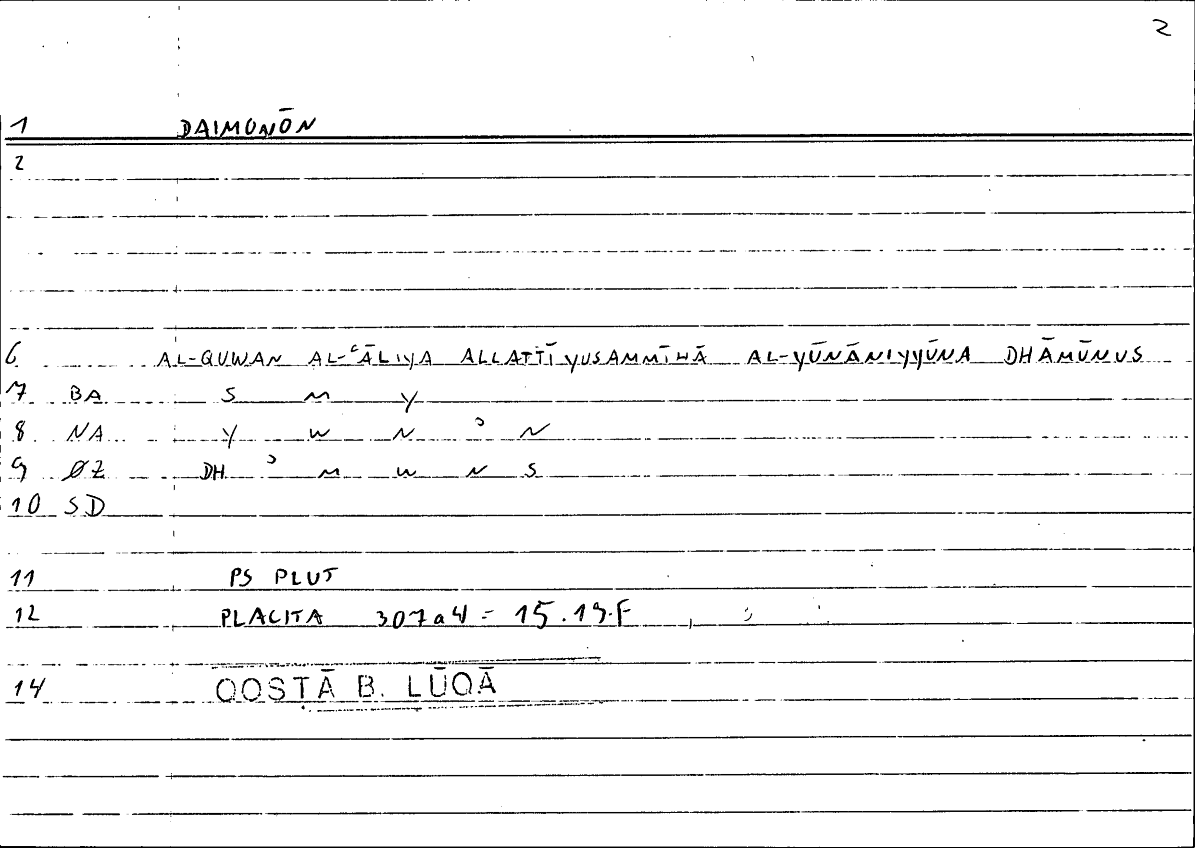 2
1 DAIMONŌN
2
6 AL-QUWAN AL-ʿĀLIYA ALLATTĪ YUSAMMĪHĀ AL-YŪNĀNIYYŪNA DHĀMŪNUS
7 BA S M Y
8 NA Y W N ʾ N
9 ØZ DH ʾ M W N S
10 SD
11 PS PLUT
12 PLACITA 307a4 = 15.19.F
14 QOSṬĀ B. LŪQĀ